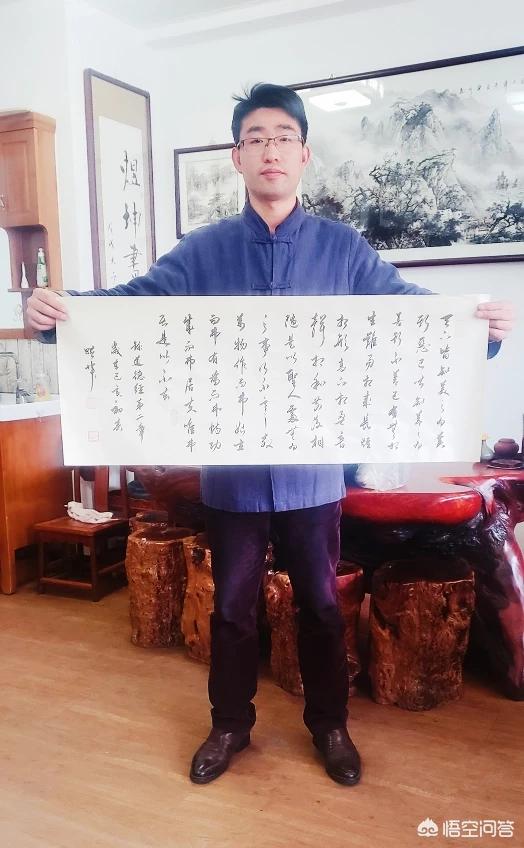 天下皆知美之为美
斯恶已皆知善之为
善斯不善已有无相
生难易相成长短
相形高下相盈音
聲相和前后相
随是以聖人處无为
之事行不言之教
萬物作而弗始生
而弗有为而弗恃功
成而弗居夫唯弗
居是以不去
录道德经第二章
歲在己亥初春
煜坤書
悟空问答